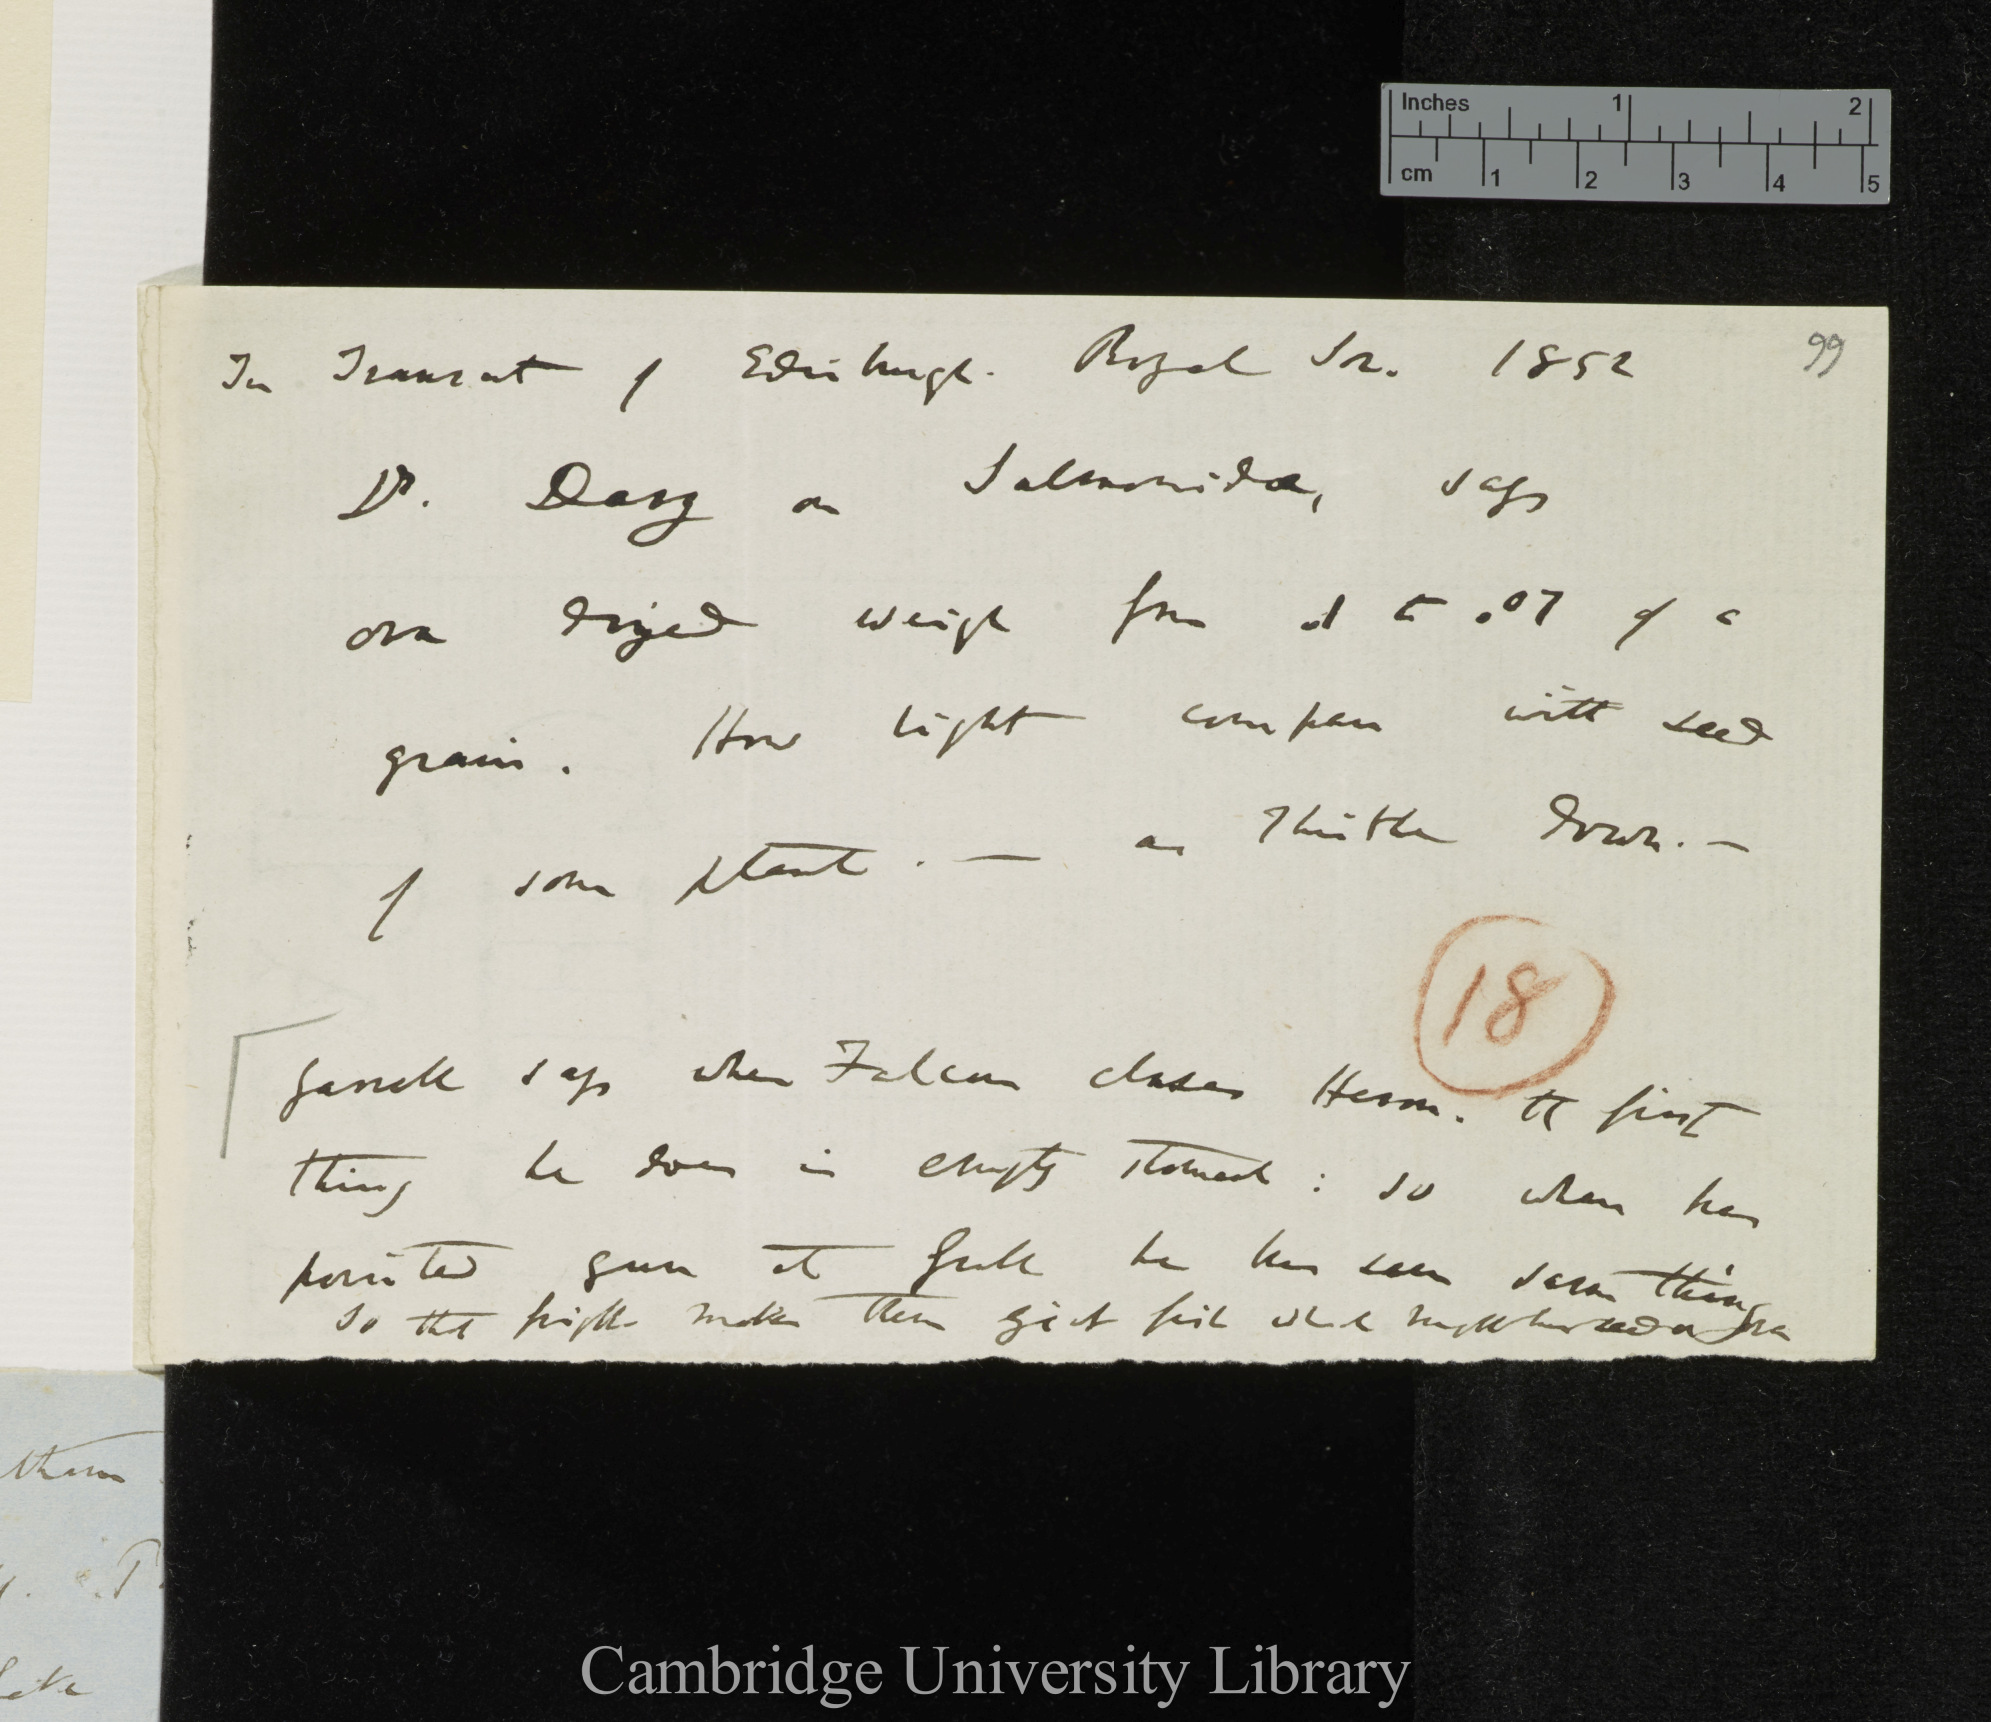 Inches 1 2
cm 1 2 3 4 5
99
In Transact of Edinburgh. Royal Soc. 1852
Dr. Davy on Salmonidae, says
ova dryed weigh from .1 to .07 of a
grain. How light compare with seed
of some plants. — as Thistle down. —
18
says when Falcon chases Heron. the first
thing he does is empty stomach : so when has
pointed gun at Gull he has seen same thing
So that fright makes them eject fish which might have seed or ova
them
Cambridge University Library